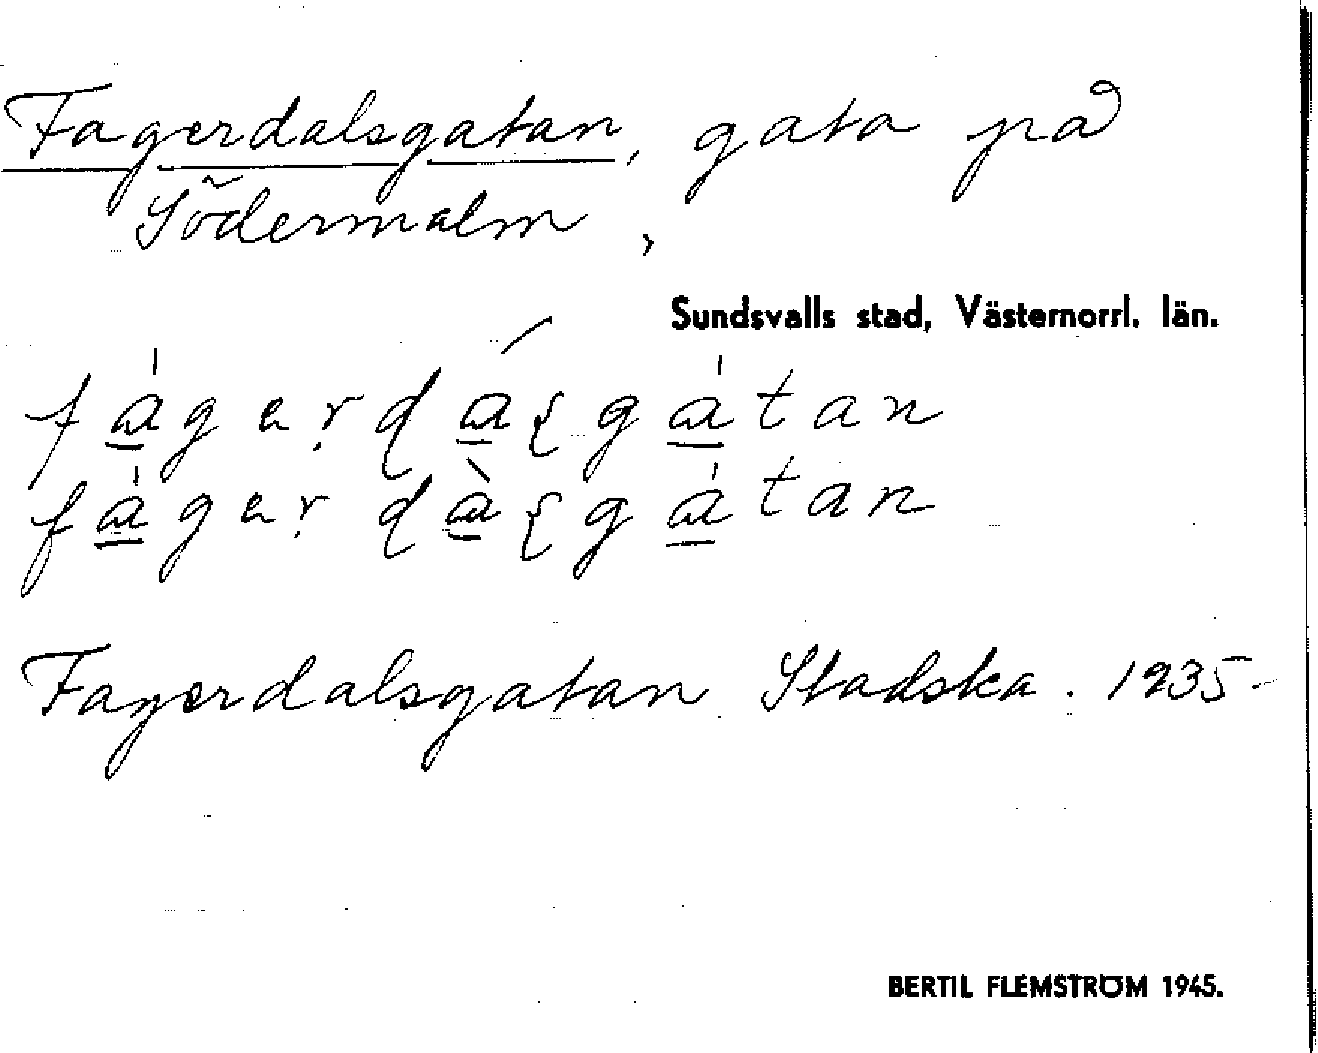 Fagerdalsgatan, gata på
Södermalm,
Sundsvalls stad, Västernorrl. län.
Fagerdalsgatan Stadska. 1935
BERTIL FLEMSTRÖM 1945.